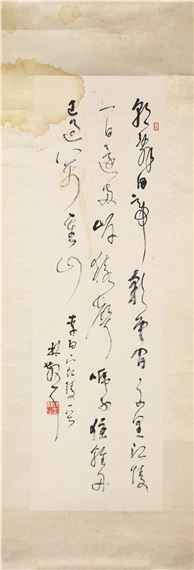 朝辭白帝彩雲間千里江陵
一日還兩岸猿聲啼不住輕舟
已過萬重山 李白下江陵一首
林散之